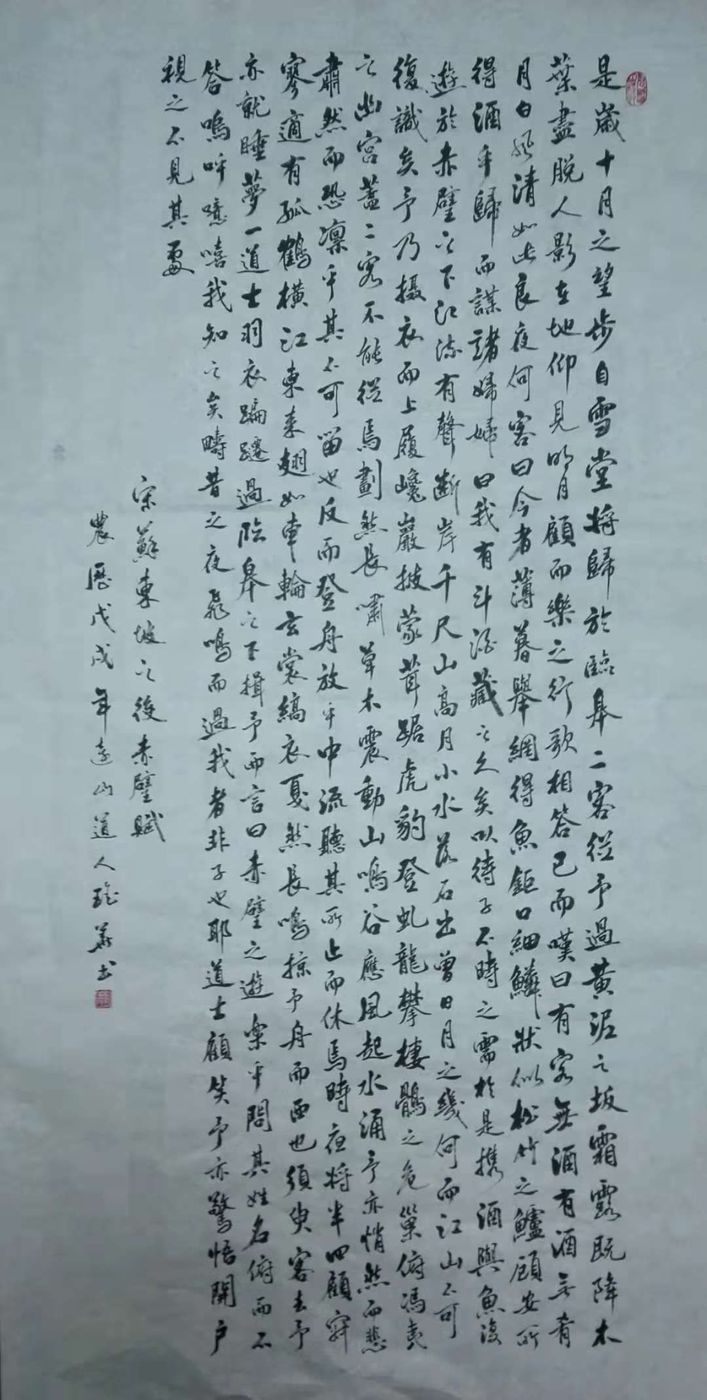 是歲十月之望步自雪堂將歸於臨皋二客從予過黃泥之坂霜露既降木
葉盡脫人影在地仰見明月顧而樂之行歌相答已而嘆曰有客無酒有酒無肴
月白風清如此良夜何客曰今者薄暮舉網得魚鉅口細鱗狀似松竹之鱸顧安所
得酒乎歸而謀諸婦婦曰我有斗酒藏之久矣以待子不時之需於是攜酒與魚復
遊於赤壁之下江流有聲斷岸千尺山高月小水落石出曾日月之幾何而江山不可
復識矣予乃攝衣而上履巉巖披蒙茸踞虎豹登虬龍攀棲鶻之危巢俯馮夷
之幽宮蓋二客不能從焉劃然長嘯草木震動山鳴谷應風起水涌予亦悄然而悲
肅然而恐凜乎其不可留也反而登舟放乎中流聽其所止而休焉時夜將半四顧寂
寥適有孤鶴橫江東來翅如車輪玄裳縞衣戛然長鳴掠予舟而西也須臾客去予
亦就睡夢一道士羽衣蹁躚過臨皋之下揖予而言曰赤壁之遊樂乎問其姓名俯而不
答嗚呼噫嘻我知之矣疇昔之夜飛鳴而過我者非子也耶道士顧笑予亦驚悟開戶
視之不見其處
宋蘇東坡之後赤壁賦
農歷戊戌年遠山道人 書